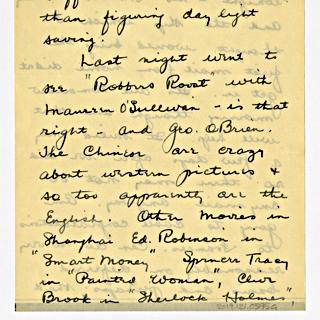 than figuring day light
saving.
Last night went to
see "Robbers Roost" with
Maureen O'Sullivan - is that
right - and Geo. O'Brien.
The Chinese are crazy
about western pictures &
so too apparently are the
English. Other movies in
Shanghai Ed. Robinson in
"Smart Money" Spencer Tracy
in "Painted Woman", Clive
Brook in "Sherlock Holmes",